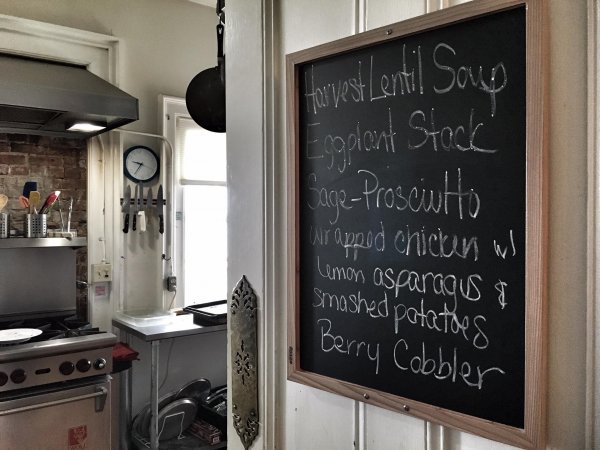 Harvest Lentil Soup
Eggplant Stack
Sage-Prosciutto
wrapped chicken w/
lemon asparagus &
smashed potatoes
Berry Cobbler